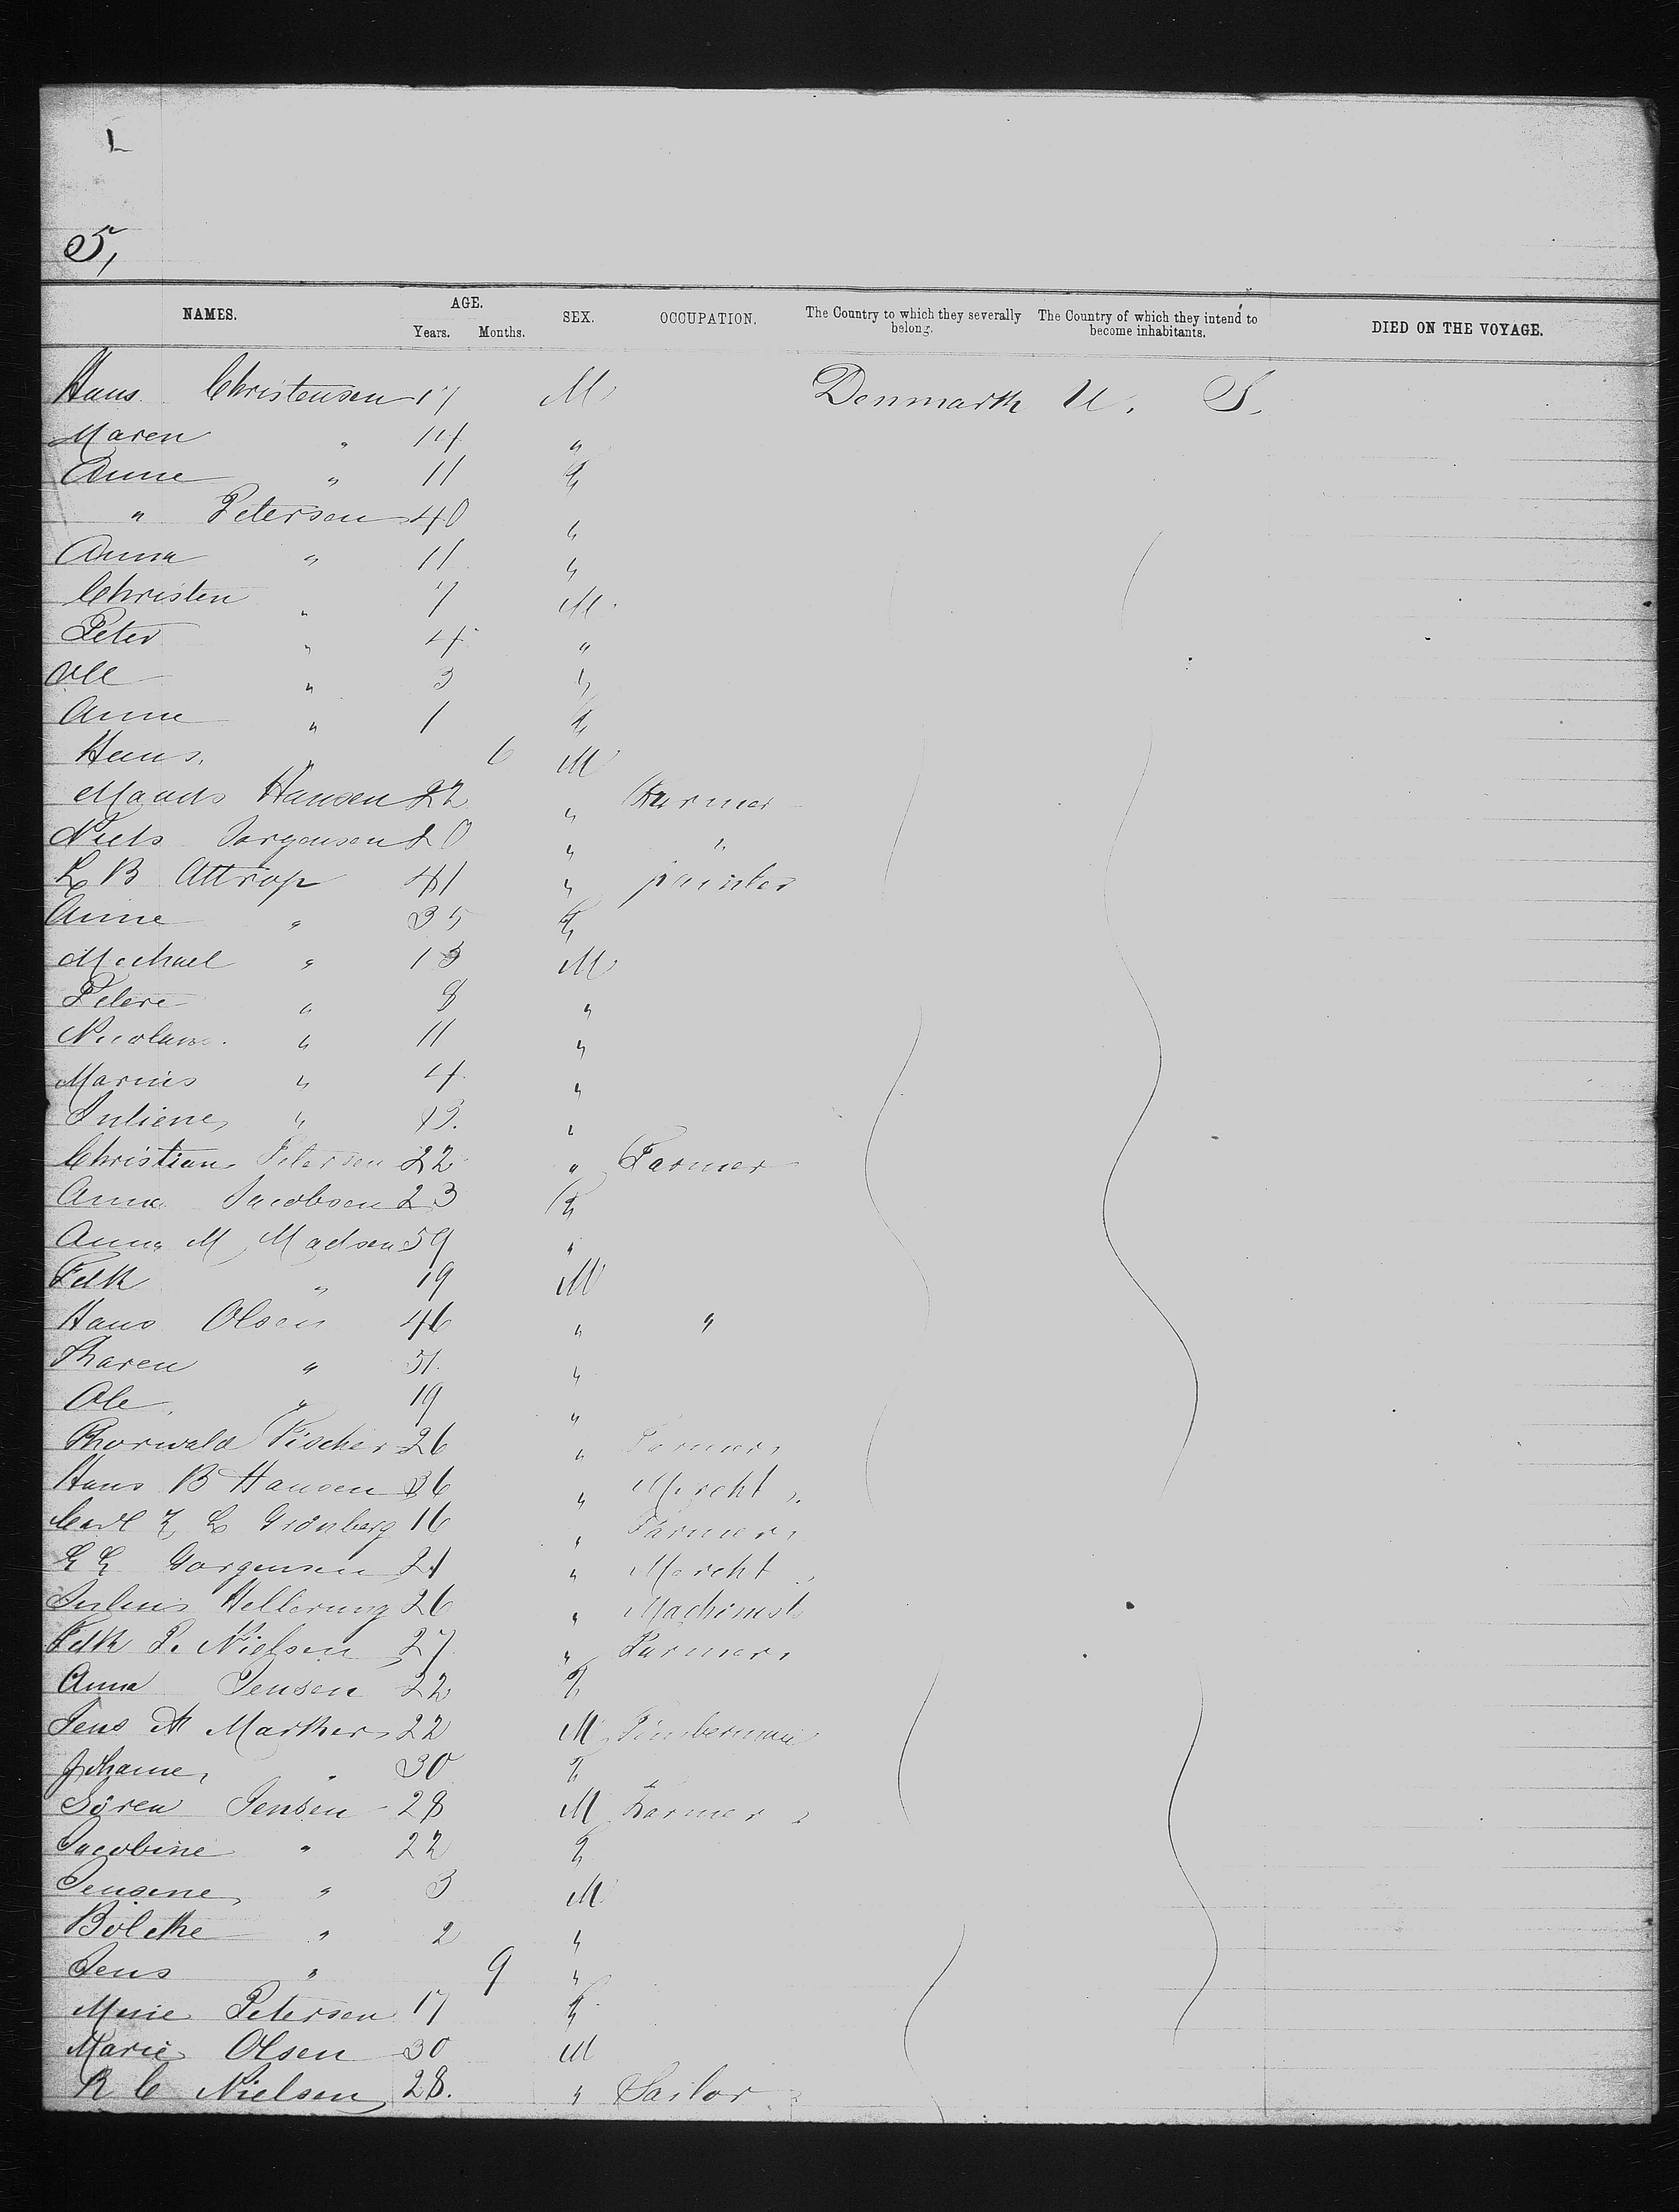 5,
NAMES. AGE. Years. Months. SEX. OCCUPATION. The Country to which they severally belong. The Country of which they intend to become inhabitants. DIED ON THE VOYAGE.
Hans Christensen 17 M Denmark U. S.
Maren " 14 "
Anne " 11 F
" Petersen 40 "
Anna " 11 "
Christen " 7 M
Peter " 4 "
Ole " 3 "
Anna " 1 F
Hans " 6 M
Hansen 22 " Farmer
Niels Jorgensen 20 " "
L B Attrop 41 " painter
Anne " 35 F
Michael " 13 M
Petere " 8 "
" 11 "
Marius " 4 "
Juliene " "
Christian Petersen 22 " Farmer
Anna Jacobsen 23 F
Anna M Madsen 59 "
Fdk " 19 M
Hans Olsen 46 " "
Karen " 51 "
Ole " 19 "
Thorwald Fischer 26 " Farmer
Hans B Hansen 36 " Mercht
Carl F L Grönberg 16 " Farmer
Gorgensen 21 " Mercht
Julius Hellerung 26 " Machinist
Fdk P. Nielsen 27 " Farmer
Anna Jensen 22 F
Jens Marker 22 M Timberman
Johanne " 30 F
Sören Jensen 28 M Farmer
Jacobine " 22 F
Jensine " 3 M
" 2 "
Jens " 9 "
Petersen 17 F
Marie Olsen 30 M
R C Nielsen 28. " Sailor